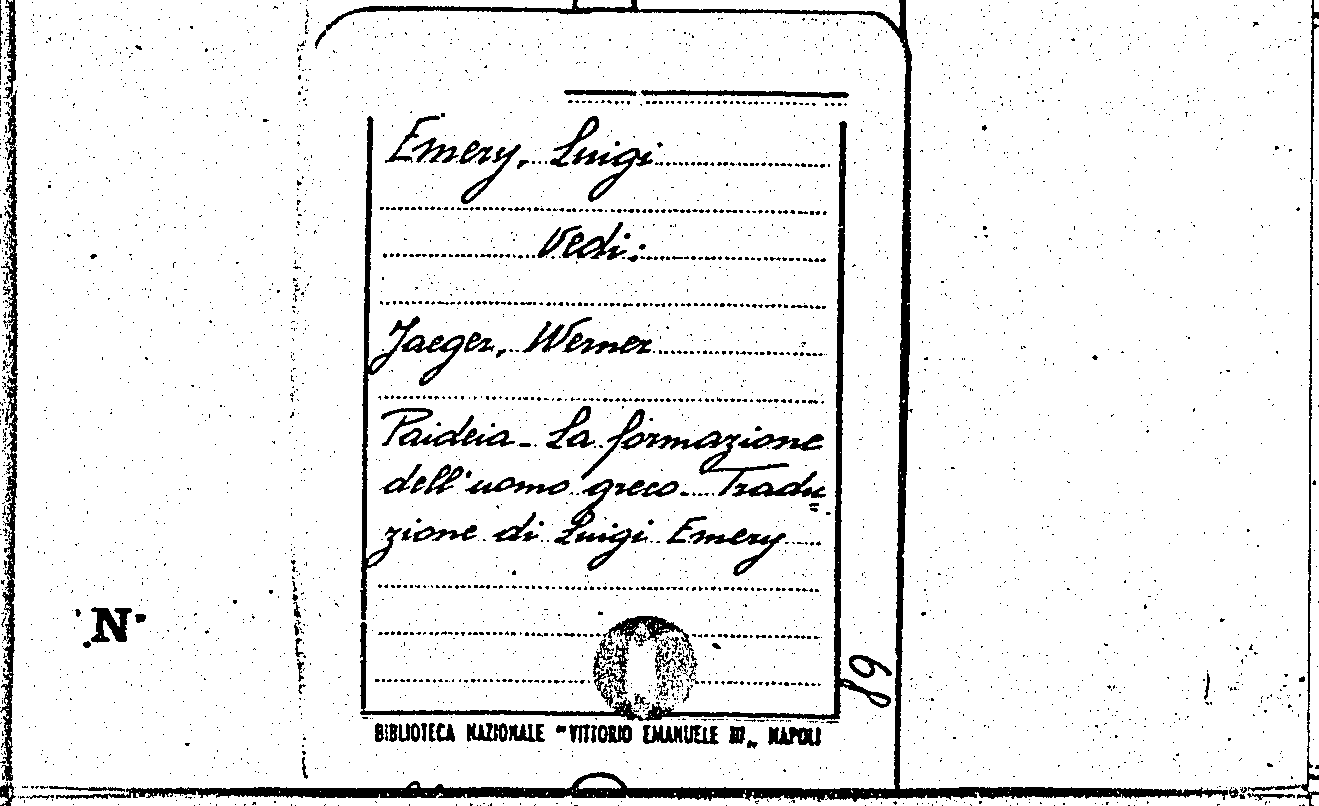 Emery, Luigi
Vedi:
Jaeger, Werner
Paideia - La formazione
dell'uomo greco - Tradu
zione di Luigi Emery
89
N
BIBLIOTECA NAZIONALE "VITTORIO EMANUELE III" NAPOLI